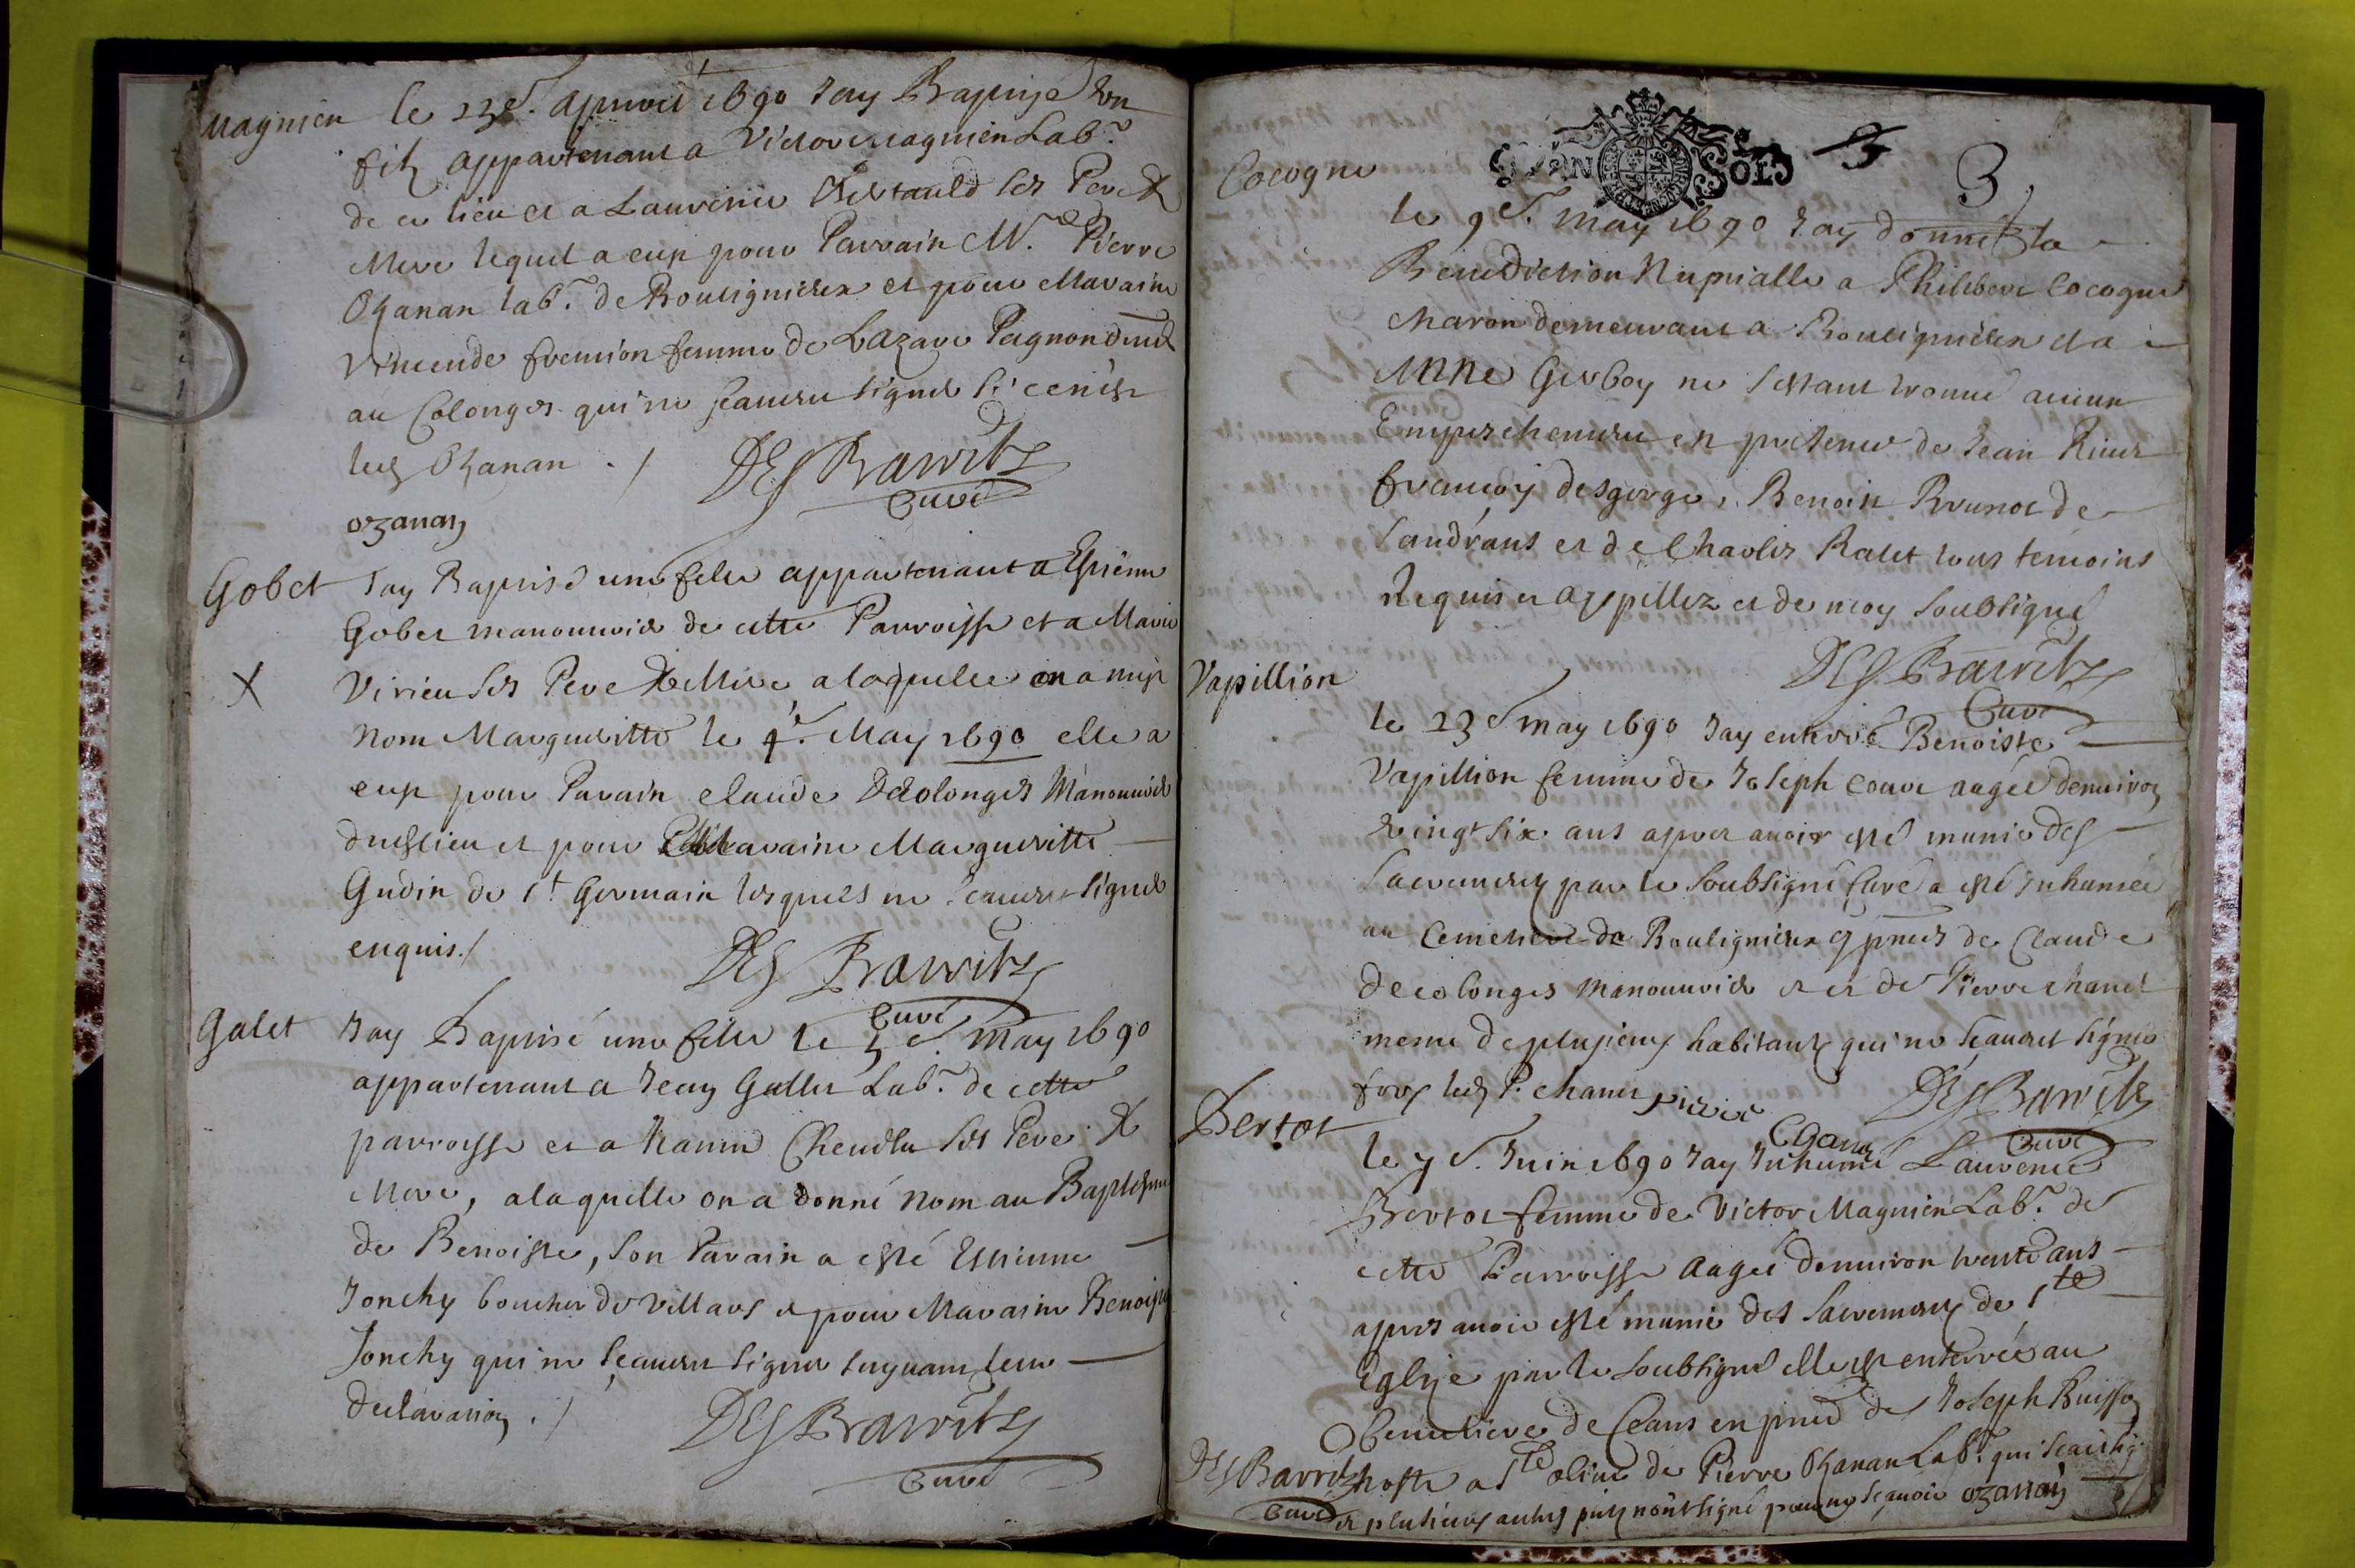 Magnien le 23e. apruril 1690 Jay Baptisé Un
filz appartenant a Victor Magnien Lab.r
de ce lieu et a Laurence Bertauld ses Pere &
Mere lequel a eup pour Parrain M.re Pierre
Ozanan lab.r de Bouligneux et pour Maraine
Vincende fremion femme de Lazare Pagnon dud
au Colonges qui ne scauent signer si ce n'est
led Ozanan ./
DEs Barritz
Curé
ozanan
Gobet Jay Baptisé une fille appartenant a Estienne
Gobet manouurier de cette Parroisse et a Marie
X Virieu ses Pere & Mere a laquelle on a mis
nom Margueritte le 4e. May 1690 elle a
eup pour Parain Claude Decolonges Manouurier
dud lieu et pour Maraine Margueritte
Gudin de St Germain lesquels ne scauent signer
enquis./
DEs Barritz
Curé
Galet Jay Baptisé une fille le 5e. May 1690
appartenant a Jean Gallet Lab.r de cette
parroisse et a Chendlu ses Pere &
Mere, a laquelle on a donné nom au Baptesme
de Benoiste, son Parain a esté Estienne
Jonchy boucher de Villars et pour Maraine Benoiste
Jonchy qui ne scauent signer suyuant leur
declaration ./
DEs Barritz
Curé
SOLS
3
Cocogne
le 9e. may 1690 Jay donné la
Benediction Nuptialle a Philibert Cocogne
charon demeurant a Bouligneux et a
Anne Gerboy ne sestant trouué aucun
Empeschement en presence de Jean
francoy desgorge, Benoin Brunot de
Sandrans et de Charles Ralet tous temoins
Requis et appellez et de moy soubsigné
DEs Barritz
Curé
Vapillion
le 23e may 1690 Jay enterré Benoiste
Vapillion femme de Joseph Couve aagée denuiron
vingt six ans apres auoir esté munie des
Sacrements par le soubsigné Curé a esté Inhumée
au Cemetiere de Bouligneux es pnces de Claude
decolonges manouurier et de Pierre chanel
meme de plusieurs habitants qui ne scauent signer
fors led P. chanel Pierre Chanel
DEs Barritz
Curé
Bertot
le 7e. Juin 1690 Jay Inhumé Laurence
Bertot femme de Victor Magnien Lab.r de
cette Parroisse aagée denuiron trente ans
apres auoir esté munie des Sacrements de Ste
Eglise par le soubsigné elle est enterrée au
Cemetiere de Ceans en pnce de Joseph Buisson
hoste a Ste oliue de Pierre Ozanan Lab.r qui scait sig.
DEs Barritz
Curé
et plusieurs autres qui n'ont signé pour ne scauoir ozanan